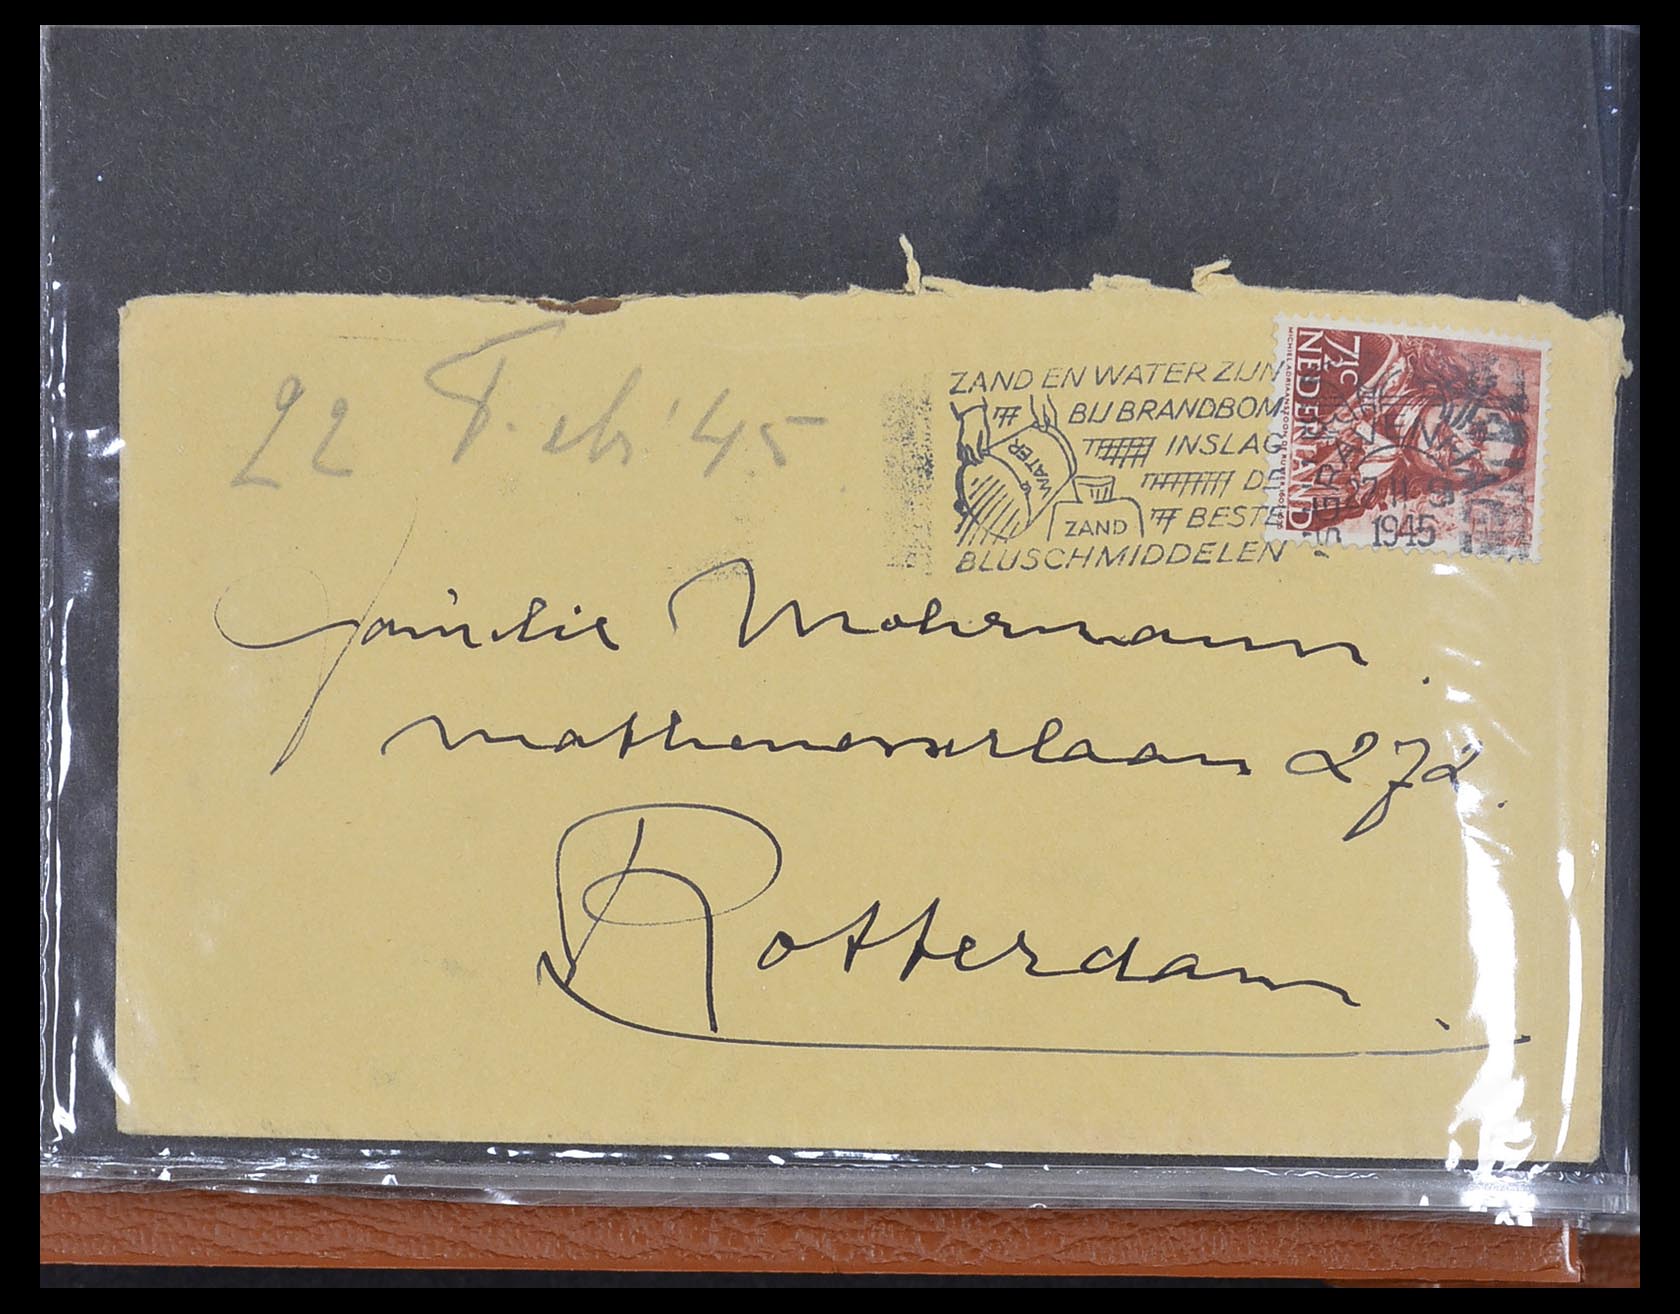 22 Febr '45
ZAND EN WATER ZIJN
BIJ BRANDBOM
INSLAG
DE
BESTE
BLUSCHMIDDELEN
WATER
ZAND
7½ C
NEDERLAND
MICHIEL ADRIAANSZOON DE RUYTER 1607-1676
'S GRAVENHAGE
27.II
1945
Familie Mohrmann.
Mathenesserlaan 272.
Rotterdam.